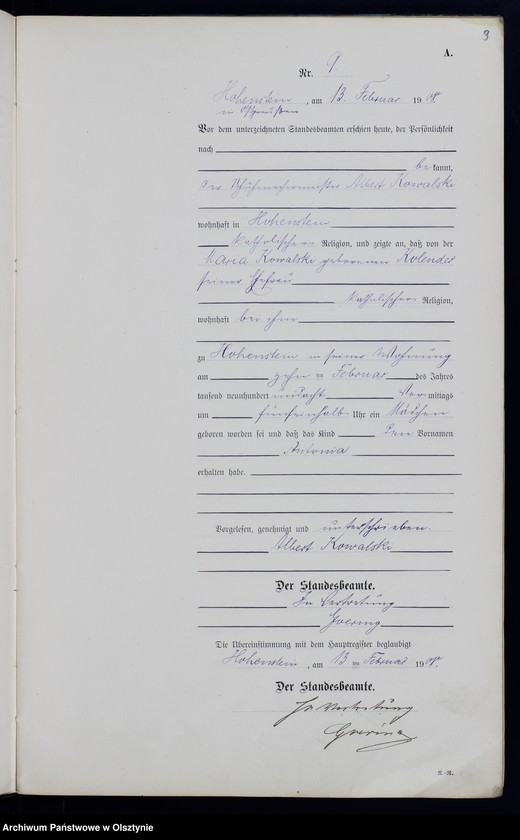 9
A.
Nr. 9
Hohenstein, am 13. Februar 1908
in Ostpreußen
Vor dem unterzeichneten Standesbeamten erschien heute, der Persönlichkeit
nach
be kannt,
der Schuhmachermeister Albert Kowalski
wohnhaft in Hohenstein
katholischer Religion, und zeigte an, daß von der
Maria Kowalski geborenen Kolender
seiner Ehefrau
katholischer Religion,
wohnhaft bei ihm
zu Hohenstein in seiner Wohnung
am zehn ten Februar des Jahres
tausend neunhundert und acht Vor mittags
um fünfeinhalb Uhr ein Mädchen
geboren worden sei und daß das Kind den Vornamen
Antonia
erhalten habe.
Vorgelesen, genehmigt und unterschrieben.
Albert Kowalski
Der Standesbeamte.
In Vertretung
Goering
Die Übereinstimmung mit dem Hauptregister beglaubigt
Hohenstein, am 13 ten Februar 1908.
Der Standesbeamte.
In Vertretung
Goering
N.-N.
Archiwum Państwowe w Olsztynie